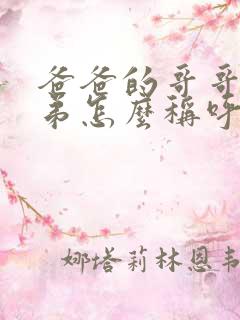 爸爸的哥哥
弟怎麼稱呼
娜塔莉林恩韦